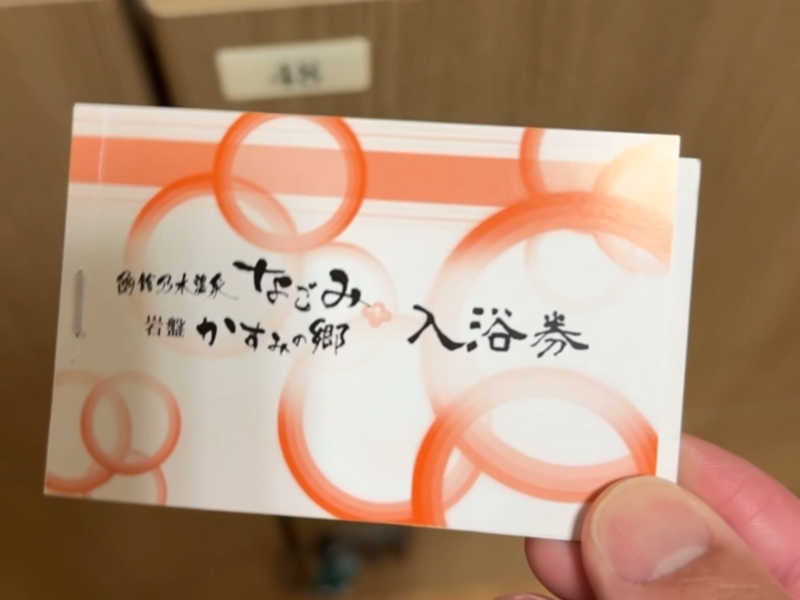 48
函館乃木温泉 なごみ
岩盤 かすみの郷
入浴券